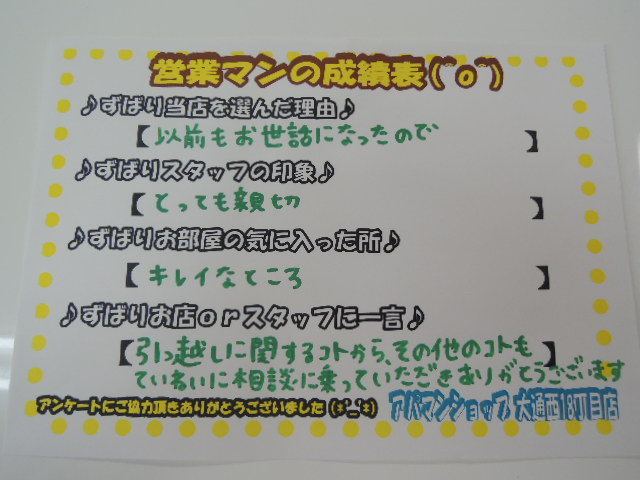 営業マンの成績表(^o^)
♪ずばり当店を選んだ理由♪
【以前もお世話になったので】
♪ずばりスタッフの印象♪
【とっても親切】
♪ずばりお部屋の気に入った所♪
【キレイなところ】
♪ずばりお店orスタッフに一言♪
【引っ越しに関するコトから、その他のコトも】
ていねいに相談に乗っていただきありがとうございます
アンケートにご協力頂きありがとうございました(*'_'*)
アパマンショップ 大通西18丁目店